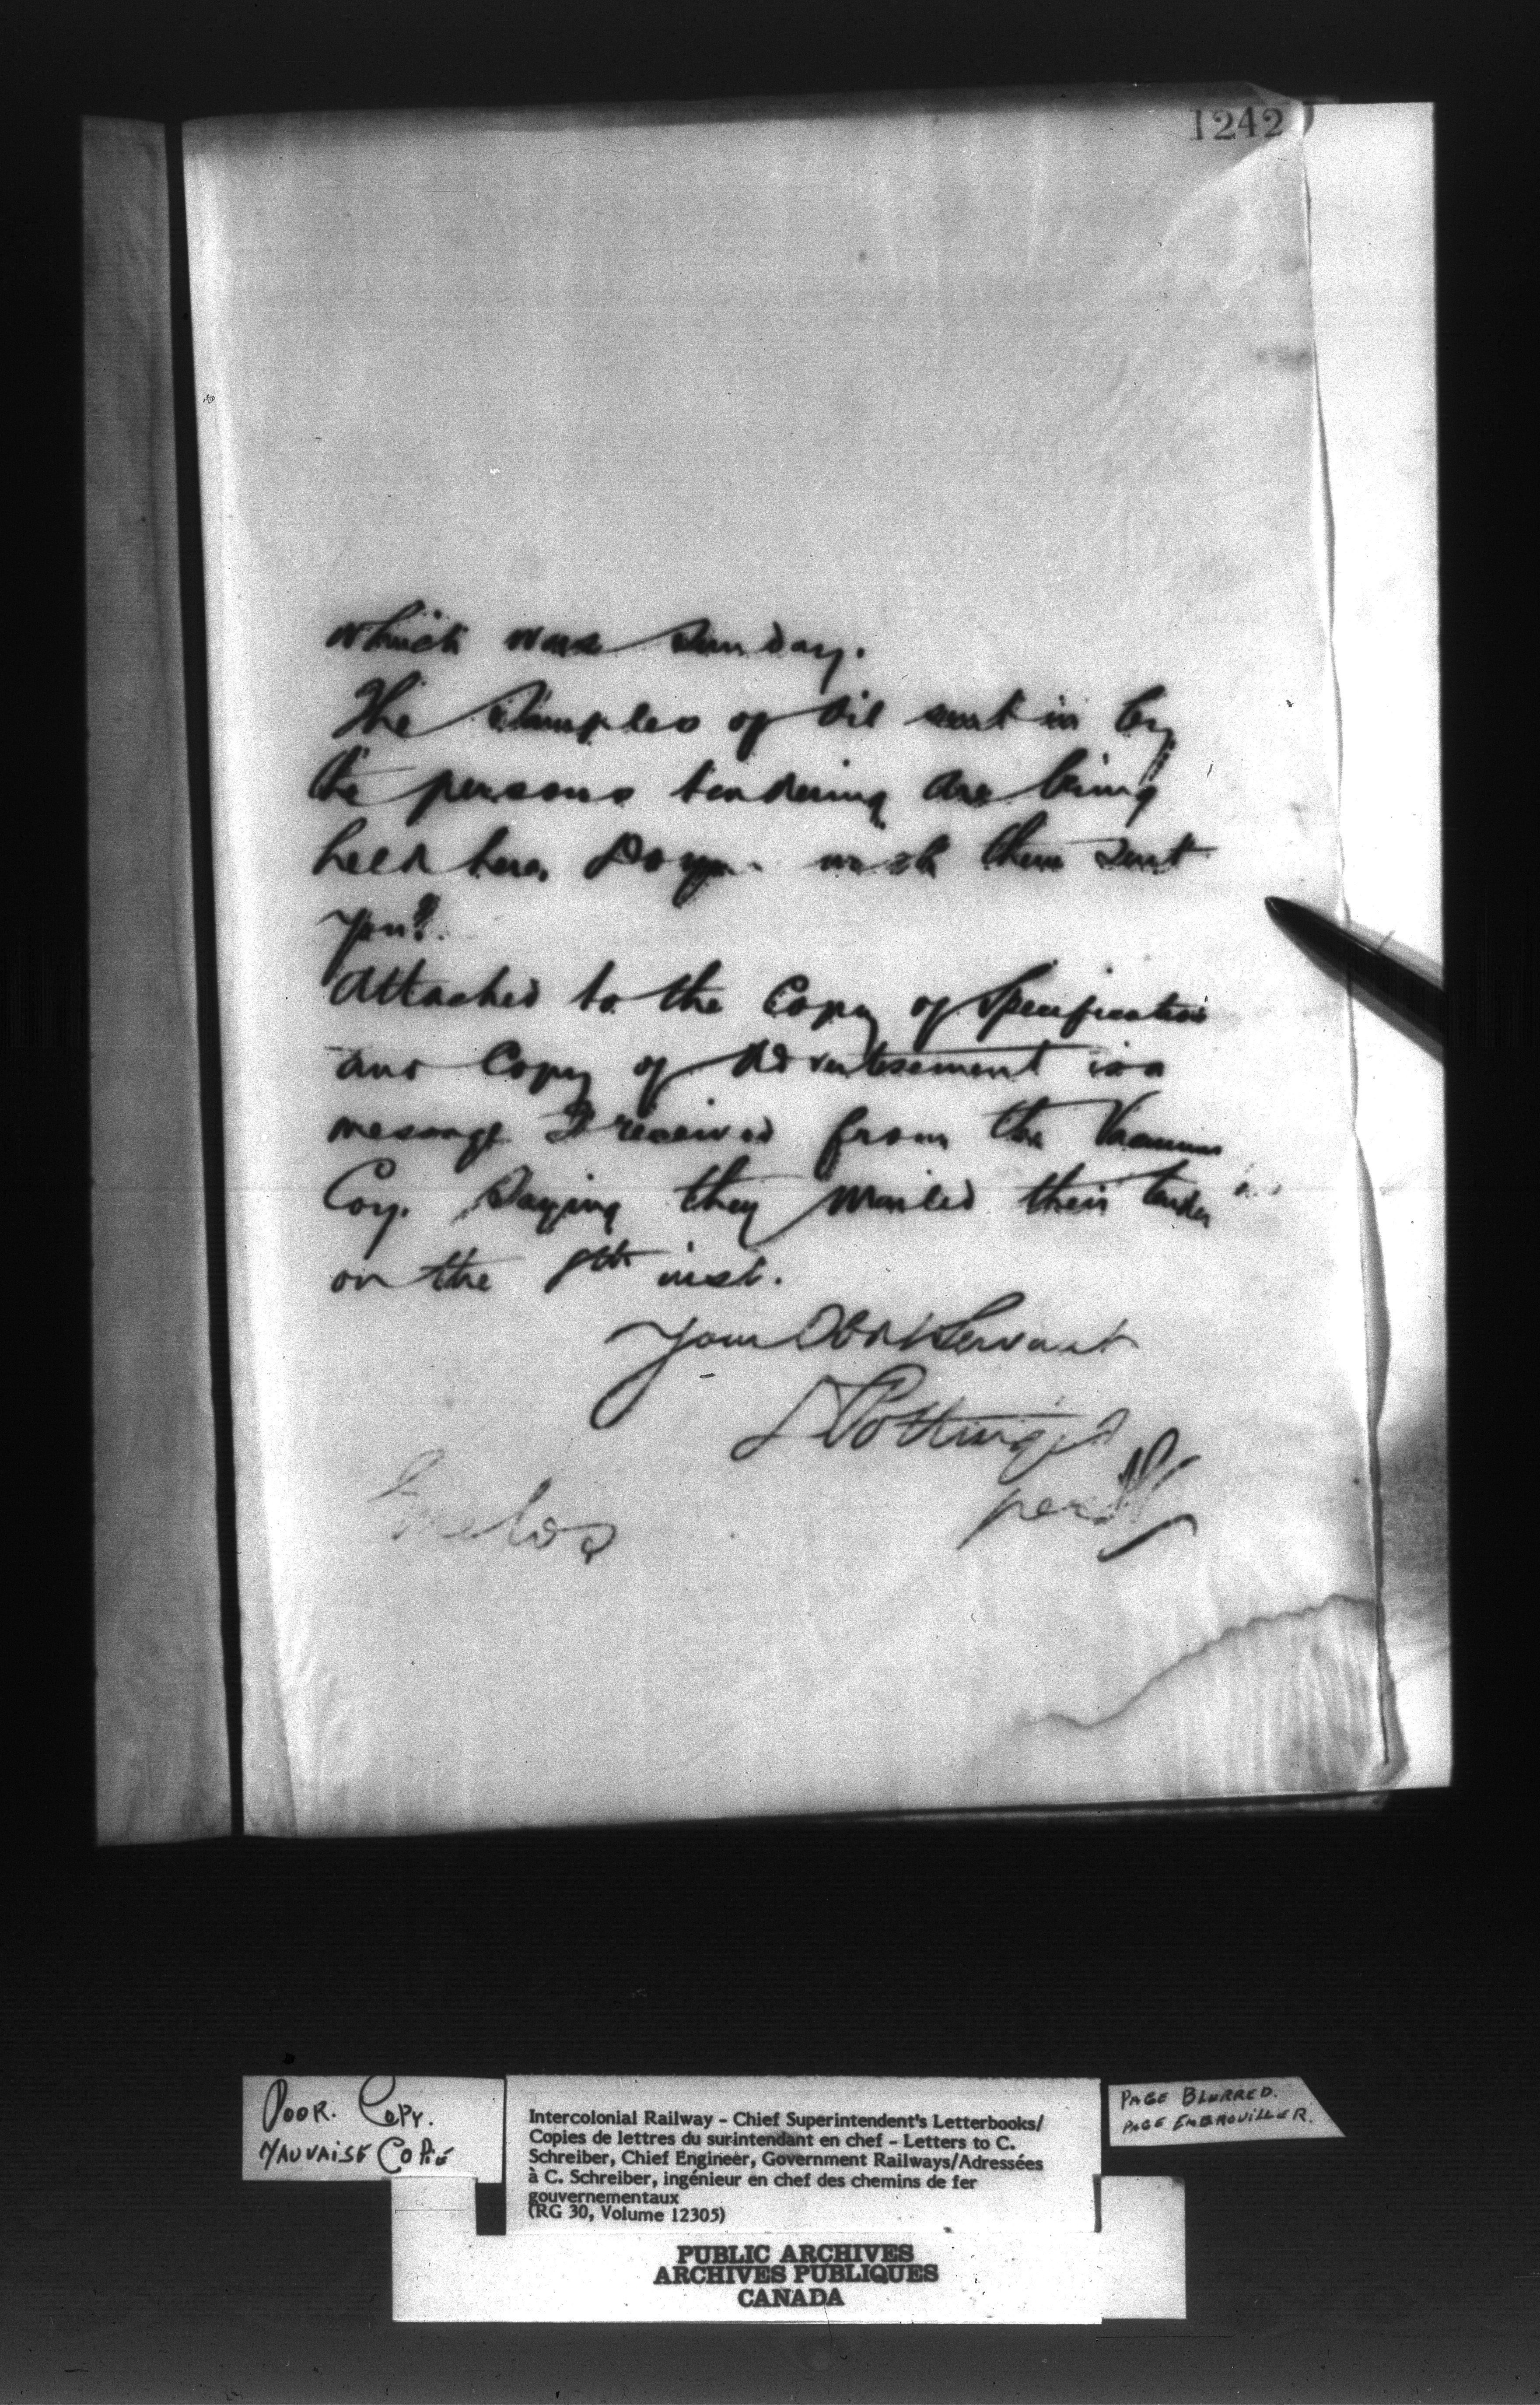 1242
which was Sunday.
The Samples of Oil sent in by
the persons tendering are being
held here, Do you wish them sent
you?.
Attached to the Copy of Specification
and Copy of Advertisement is a
message I received from the Vacuum
Coy. Saying they mailed their tender
on the 8th inst.
Your Obdt Servant
D Pottinger
per
POOR. COPY.
MAUVAISE COPIE
Intercolonial Railway - Chief Superintendent's Letterbooks/
Copies de lettres du surintendant en chef - Letters to C.
Schreiber, Chief Engineer, Government Railways/Adressées
à C. Schreiber, ingénieur en chef des chemins de fer
gouvernementaux
(RG 30, Volume 12305)
PAGE BLURRED.
PAGE EMBROUILLER.
PUBLIC ARCHIVES
ARCHIVES PUBLIQUES
CANADA